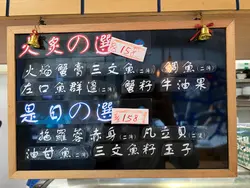 火炙の選
157
火焰蟹膏三文魚(二件) 鯛魚(二件)
左口魚群邊(二件) 蟹籽牛油果
是日の選
158
拖羅蓉赤身(二件) 帆立貝(二件)
油甘魚(二件) 三文魚籽玉子